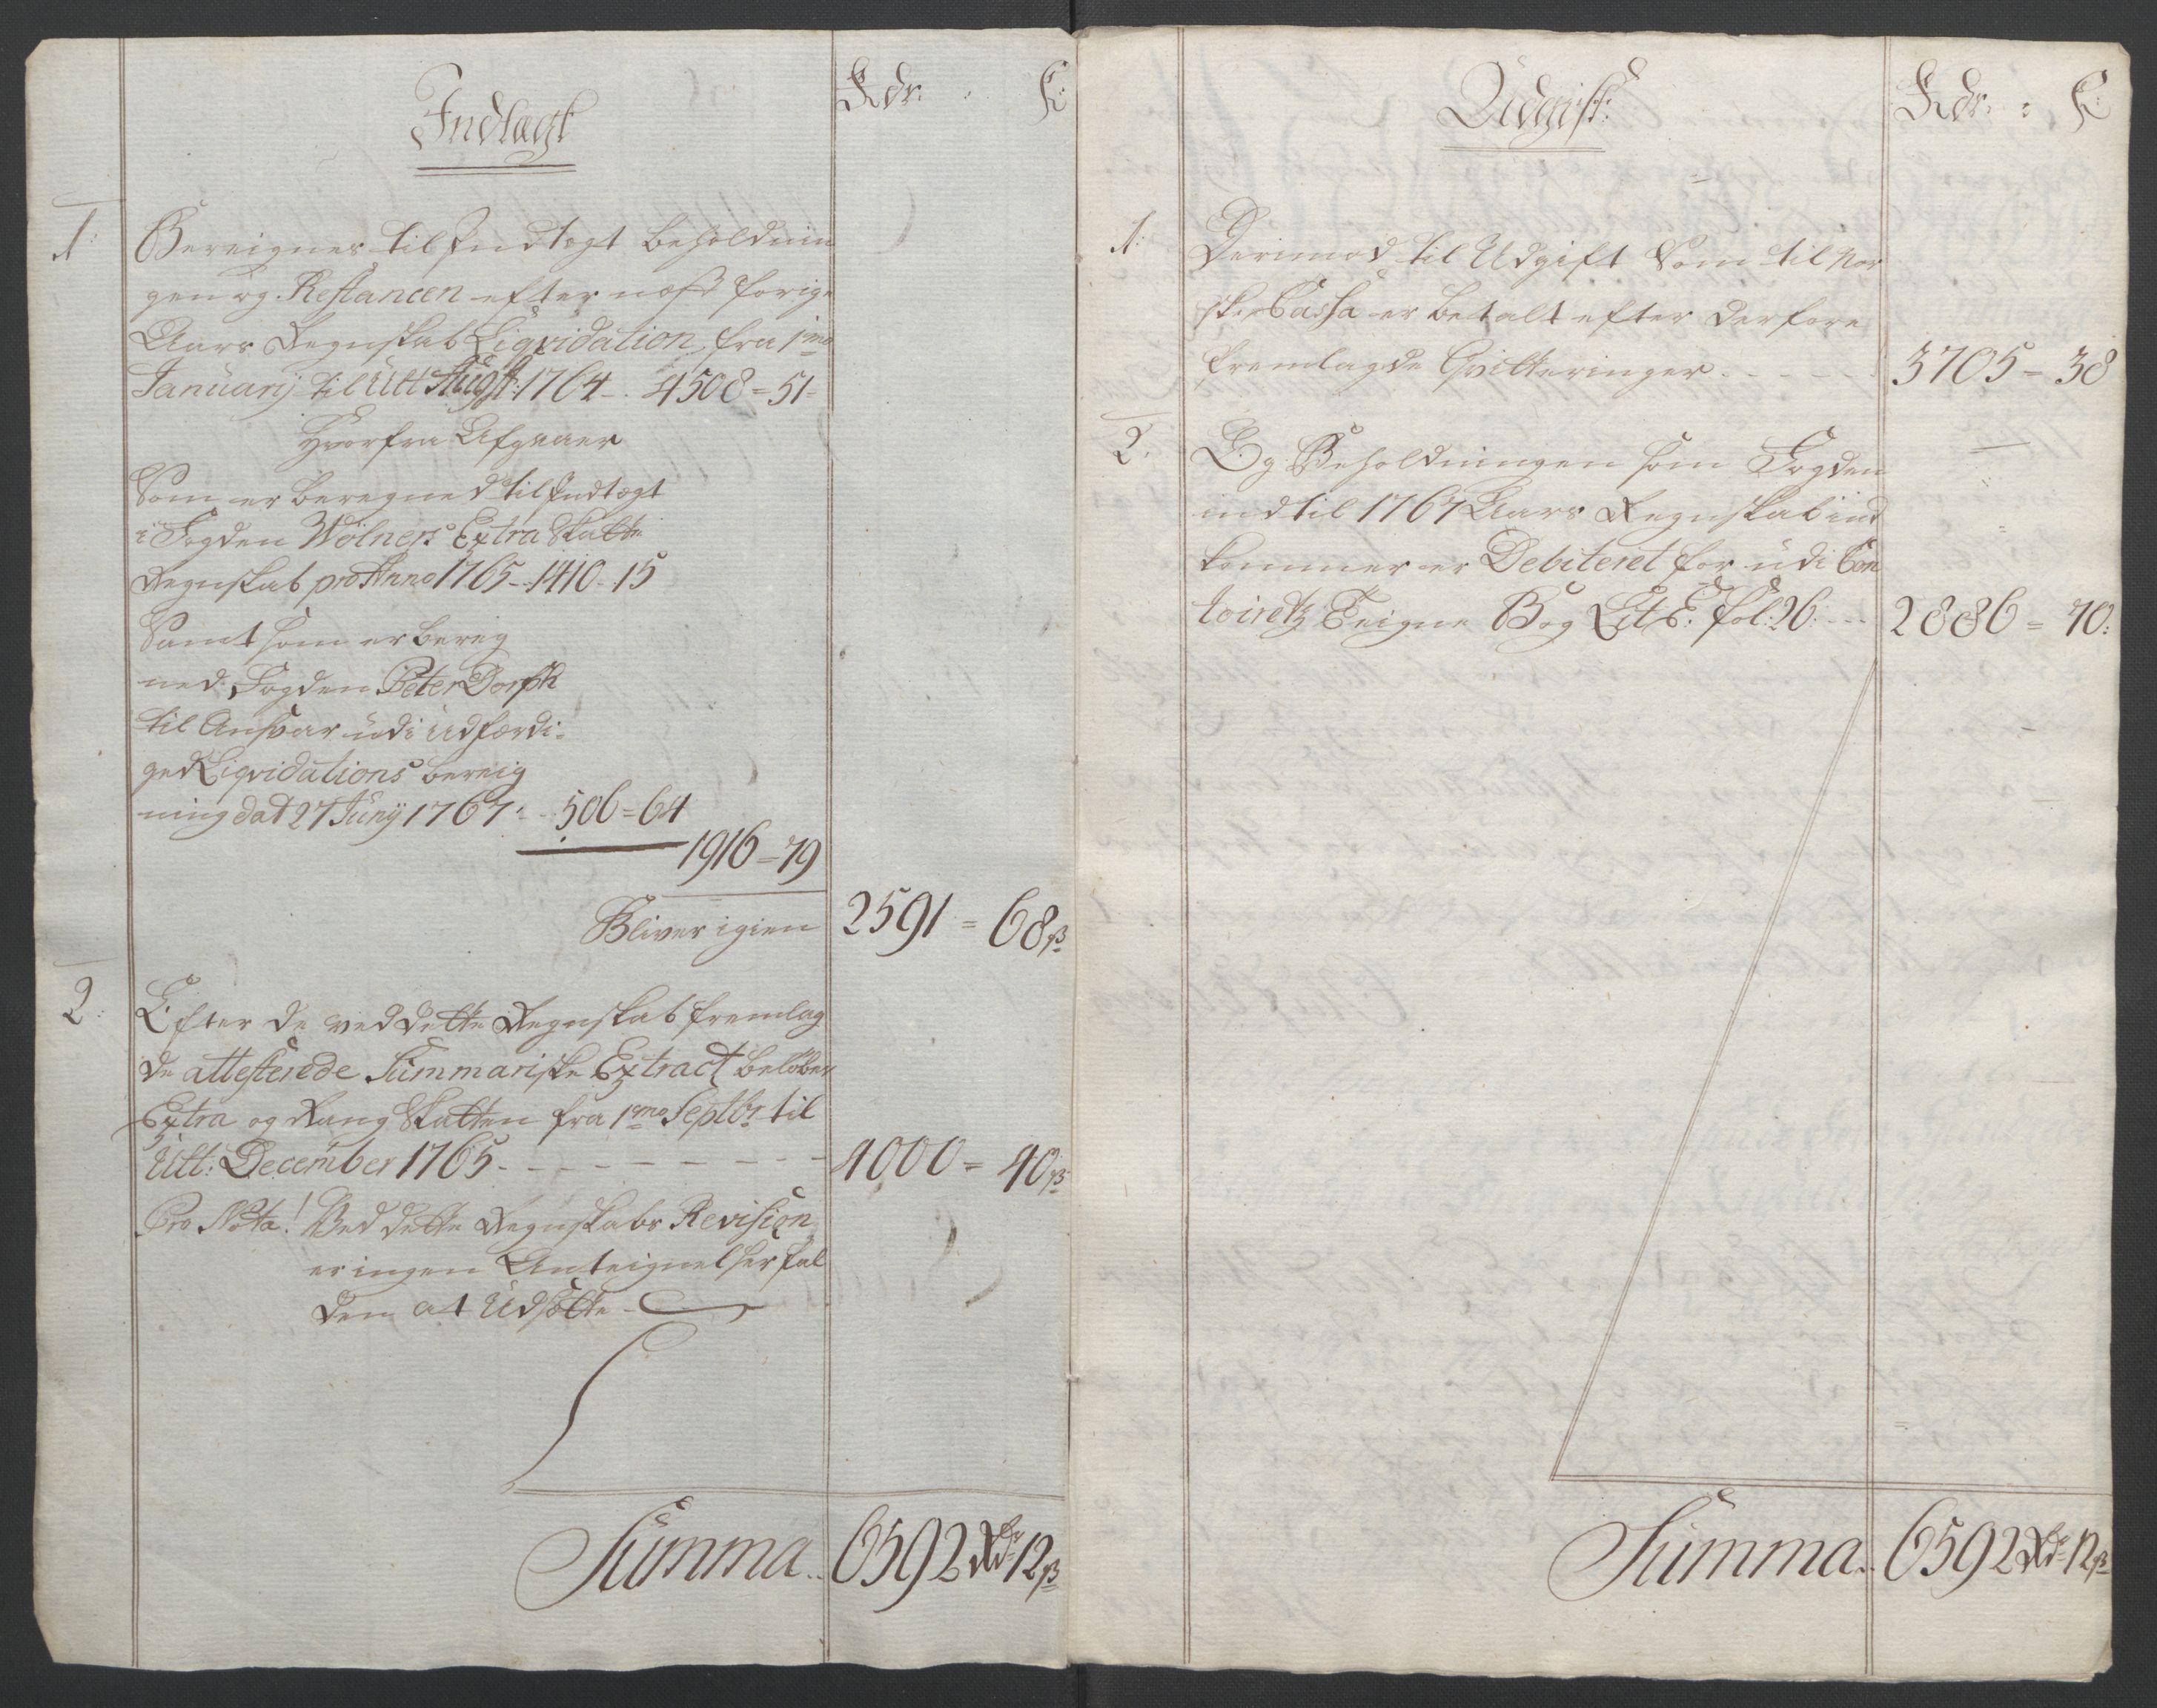 Indtægt
Rdr: ß:
1: Bereignes til Indtægt beholdnin
gen og Restancen efter næst forige
Aars Regnskab Liqvidation, fra 1mo
Januarij til Ult Augst: 1764 - 4508 = 51 -
Hvorfra Afgaaer
Som er beregned til Indtægt
i Fogden Wølners Extra Skatte
Regnskab pro Anno 1765 - 1410 - 15
Samt som er bereg
ned Fogden Peter Dorph
til Ansvar udi udfærdi-
ged Liqvidations bereig
ning dat 27 Junij 1767: - 506 = 64
1916 = 79
Bliver igien 2591 = 68 ß
2: Efter de ved dette Regnskab fremlag
de attesterede Summariske Extract beløber
Extra og Rang Skatten fra 1mo Septbr til
Ult: December 1765 - - - - - - - - 4000 = 40 ß
Pro Nota! Ved dette Regnskabs Revision
er ingen Anteignelser fal
den at Udsætte -
Summa.. 6592 Rdr 12 ß
Udgift:
Rdr: ß:
1: Derimod til Udgift Som til Nor
ske Cassa er betalt efter derfore
fremlagde Qvitteringer - - - - 3705 = 38
2. Og Beholdningen som Fogden
indtil 1767 Aars Regnskab ind
kommer er Debiteret for udi Con
toiretz Teigne Bog Lit E: fol: 26: - - 2886 = 70:
Summa.. 6592 Rdr 12 ß